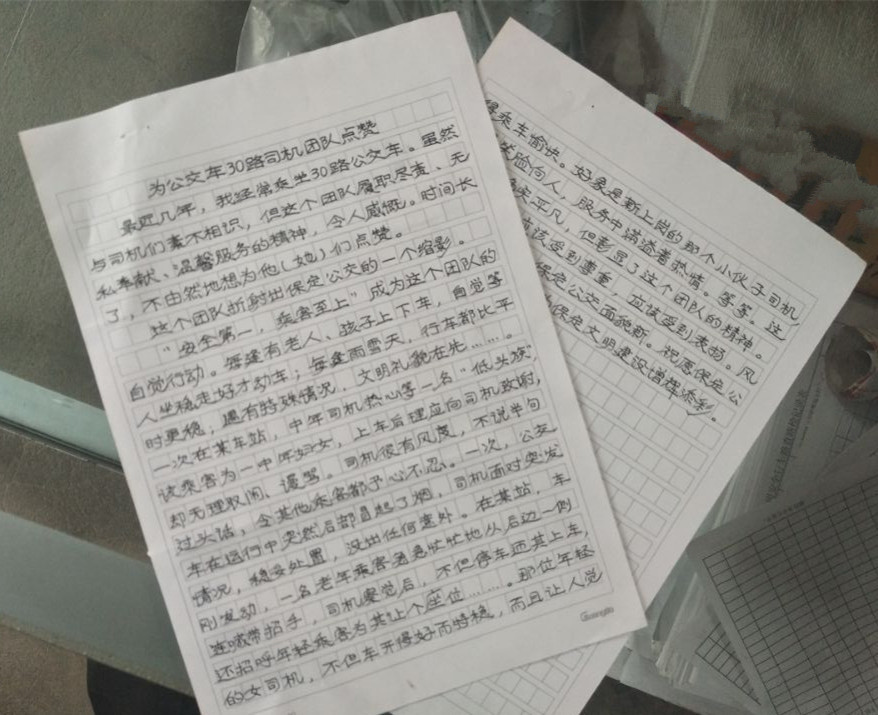 为公交车30路司机团队点赞
最近几年，我经常乘坐30路公交车。虽然
与司机们素不相识，但这个团队履职尽责、无
私奉献、温馨服务的精神，令人感慨。时间长
了，不由然地想为他(她)们点赞。
这个团队折射出保定公交的一个缩影。
"安全第一，乘客至上"成为这个团队的
自觉行动。每逢有老人、孩子上下车，自觉等
人坐稳走好才动车；每逢雨雪天，行车都比平
时更稳，遇有特殊情况，文明礼貌在先……。
一次在某车站，中年司机热心等一名"低头族"，
该乘客为一中年妇女，上车后理应向司机致谢，
却无理取闹、谩骂。司机很有风度，不说半句
过头话，令其他乘客都于心不忍。一次，公交
车在运行中突然后部冒起了烟，司机面对突发
情况，稳妥处置，没出任何意外。在某站，车
刚发动，一名老年乘客急急忙忙地从后边一侧
连喊带招手，司机察觉后，不但停车迎其上车，
还招呼年轻乘客为其让个座位……。那位年轻
的女司机，不但车开得好而特稳，而且让人觉
得乘车愉快。好象是新上岗的那个小伙子司机，
笑脸向人，服务中满溢着热情。等等。这
平凡，但彰显了这个团队的精神。
该受到尊重，应该受到表扬。风
保定公交面貌新。祝愿保定公
保定文明建设增辉添彩。
Guangbo